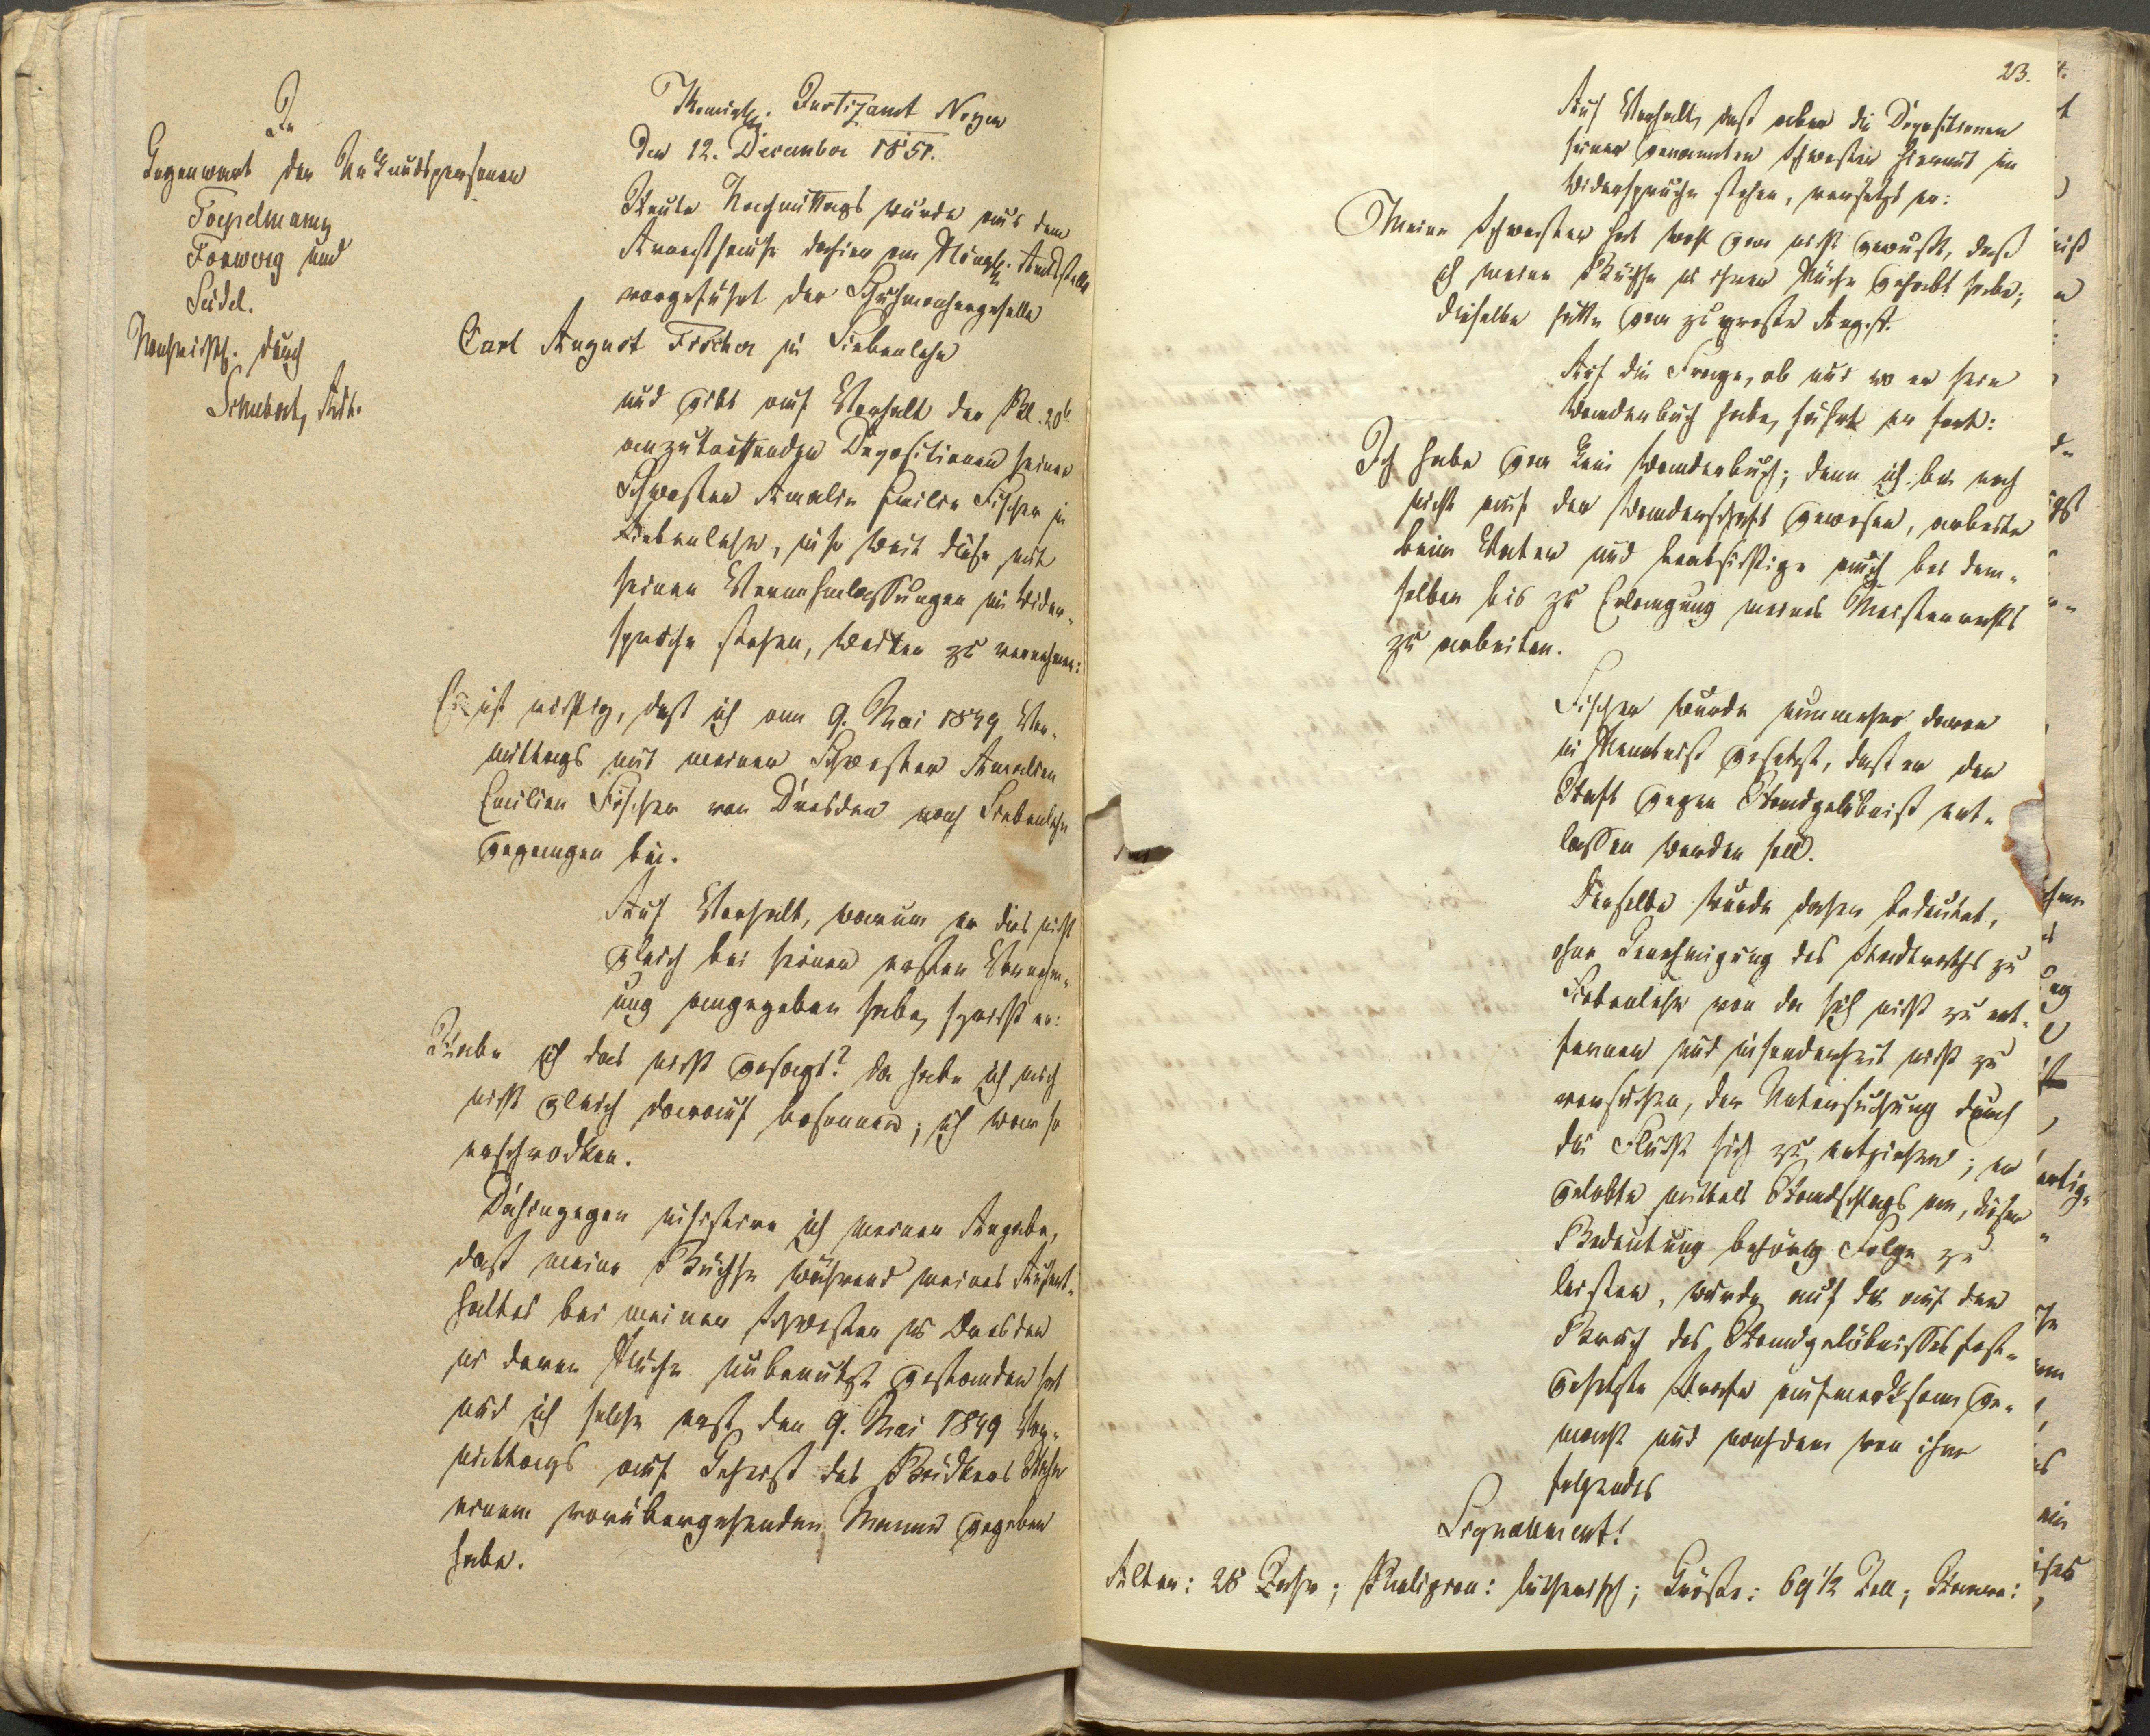 In
Gegenwart der Urkundspersonen
Toepelmann,
Forwerg und
Seidel.
Nachrichtl. durch
Schubert, Adt.
Königl. Justizamt Noßen
den 12. December 1851.
Heute Nachmittags wurde aus dem
Arresthause dahier an Königl. Amtsstelle
vorgeführt der Schuhmachergeselle
Carl August Fischer in Siebenlehn
und giebt auf Vorhalt der Bl. 20b
anzutreffenden Depositionen seiner
Schwester Amalie Emilie Fischer in
Siebenlehn, in so weit diese mit
seinen Vernehmlassungen in Wider-
spruche stehen, weiter zu vernehmen:
Es ist richtig, daß ich am 9. Mai 1849 Vor-
mittags mit meiner Schwester Amalien
Emilien Fischer von Dresden nach Siebenlehn
gegangen bin.
Auf Vorhalt, warum er dies nicht
gleich bei seiner ersten Vernehm-
ung angegeben habe, spricht er:
Habe ich das nicht gesagt? da habe ich mich
nicht gleich darauf besonnen; ich war so
erschrocken.
Dahingegen inhärire ich meiner Angabe,
daß meine Büchse während meines Aufent-
haltes bei meiner Schwester in Dresden
in deren Küche unbenutzt gestanden hat
und ich solche erst den 9. Mai 1849 Vor-
mittags auf Geheiß des Bruders
einem vorübergehenden Manne gegeben
habe.
23.
Auf Vorhalt, daß aber die Depositionen
seiner genannten Schwester hiermit im
Widerspruche stehen, versetzt er:
Meine Schwester hat wohl gar nicht gewußt, daß
ich meine Büchse in ihrer Küche gehabt habe;
dieselbe hatte gar zu große Angst.
Auf die Frage, ob und wo er sein
Wanderbuch habe, fährt er fort:
Ich habe gar kein Wanderbuch; denn ich bin noch
nicht auf der Wanderschaft gewesen, arbeite
beim Vater und beabsichtige auch bei dem-
selben bis zu Erlangung meines Meisterrechts
zu arbeiten.
Fischer wurde nunmehr davon
in Kenntniß gesetzt, daß er der
Haft gegen Handgelöbniß ent-
lassen werden soll.
Derselbe wurde daher bedeutet,
ohne Genehmigung des Stadtraths zu
Siebenlehn von da sich nicht zu ent-
fernen und insonderheit nicht zu
versuchen, der Untersuchung durch
die Flucht sich zu entziehen; er
gelobte mittels Handschlags an, dieser
Bedeutung behörig Folge zu
leisten, wurde auf die auf den
Bruch des Handgelöbnisses fest-
gesetzte Strafe aufmerksam ge-
macht und nachdem von ihm
folgendes
Signalement:
Alter: 28 Jahr; Religion: lutherisch; Größe: 69 1/2 Zoll; Haare: